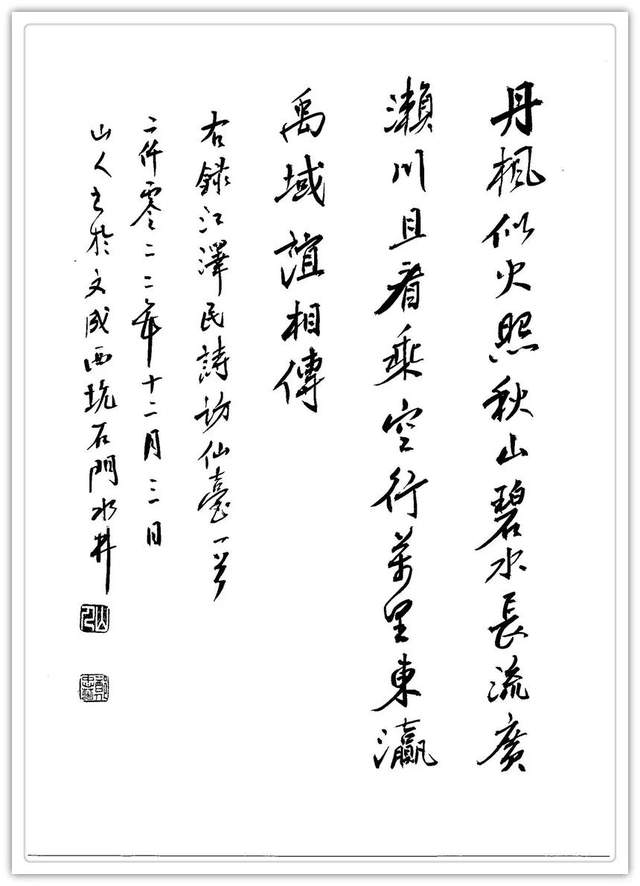 丹楓似火照秋山碧水長流廣
瀨川且看乘空行萬里東瀛
禹域誼相傳
右錄江澤民詩訪仙臺一首
二仟零二二年十二月三日
山人書於文成西坑石門水井